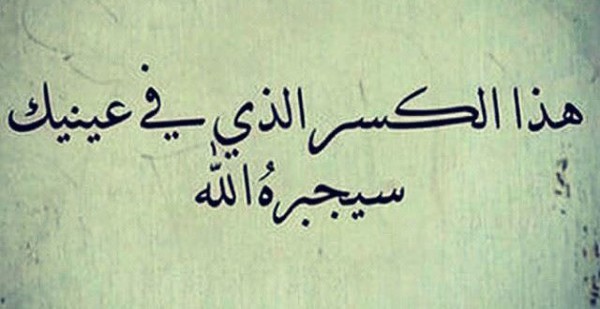 هذا الكسر الذي في عينيك
سيجبرهُ الله